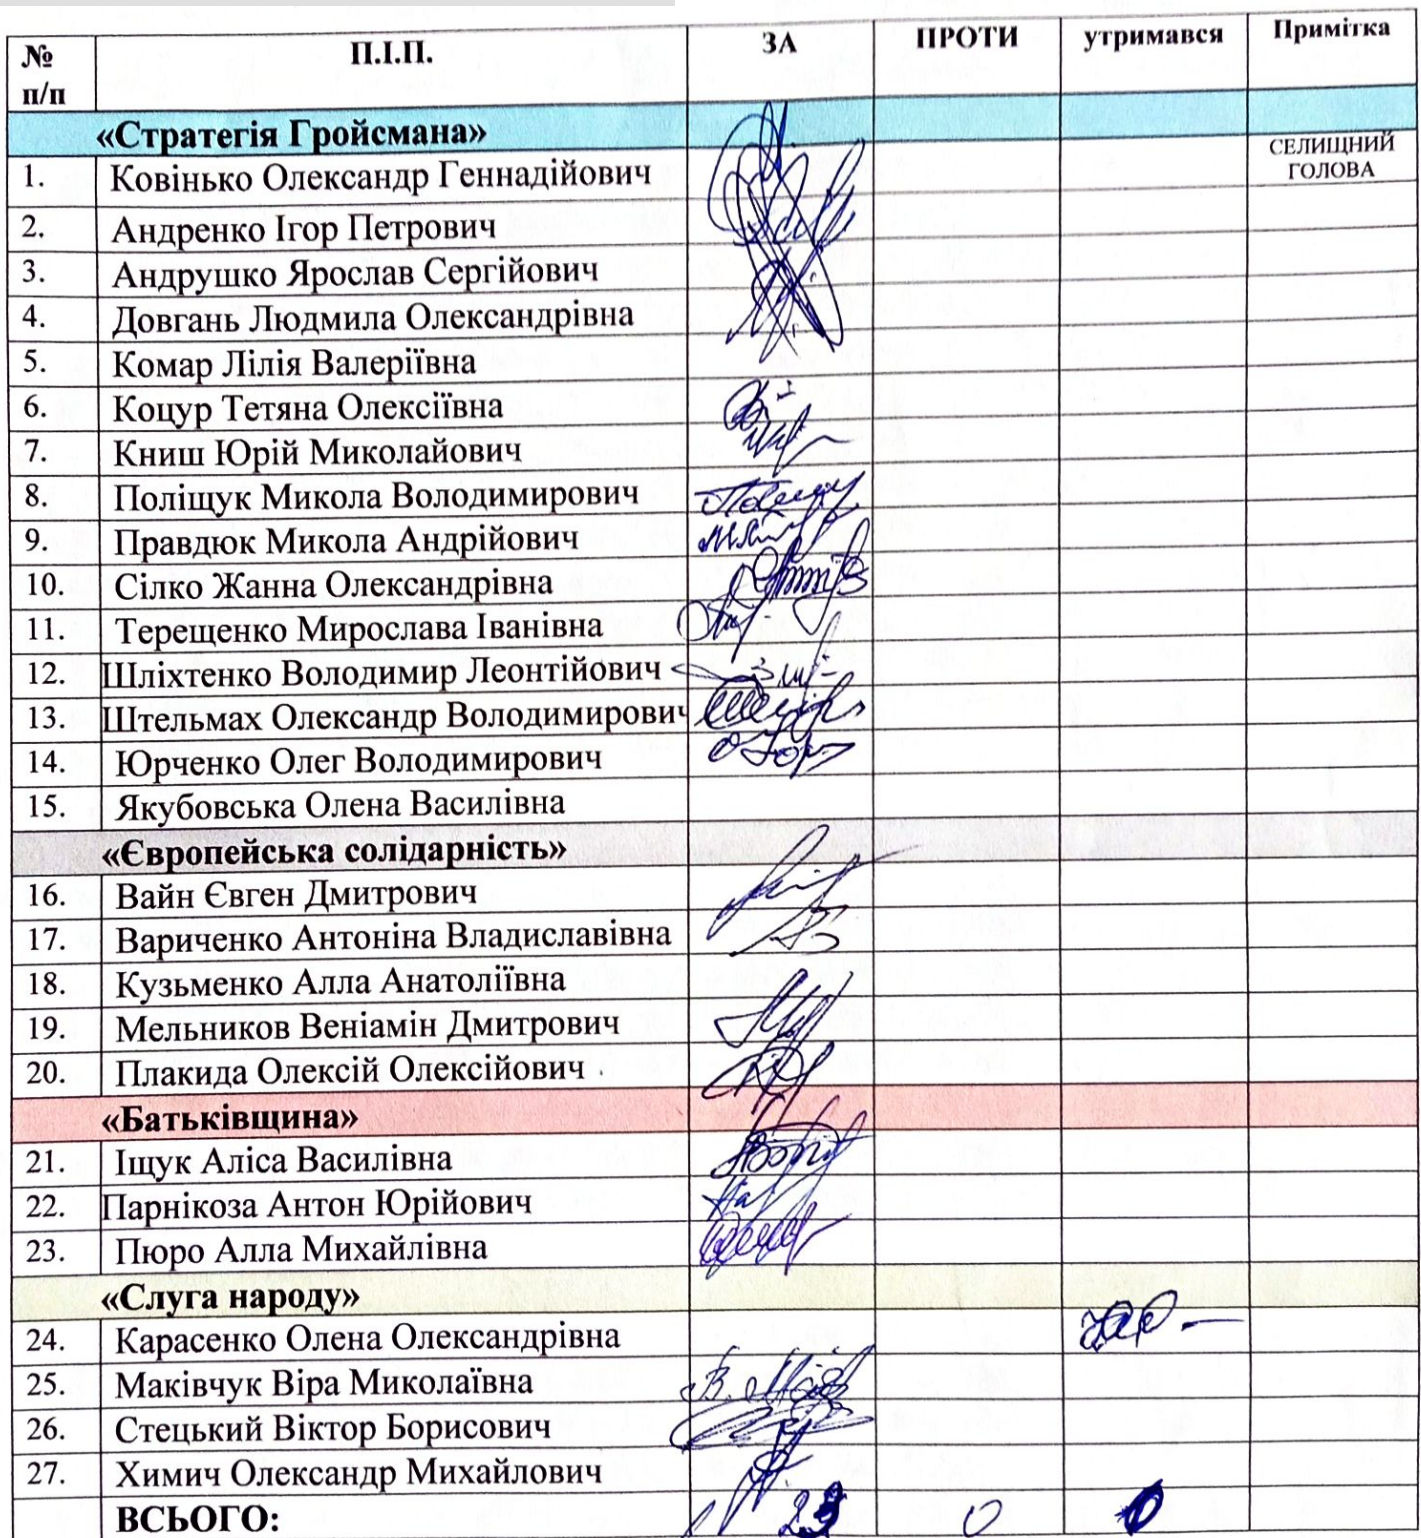 № п/п П.І.П. ЗА ПРОТИ утримався Примітка
«Стратегія Гройсмана»
1. Ковінько Олександр Геннадійович СЕЛИЩНИЙ ГОЛОВА
2. Андренко Ігор Петрович
3. Андрушко Ярослав Сергійович
4. Довгань Людмила Олександрівна
5. Комар Лілія Валеріївна
6. Коцур Тетяна Олексіївна
7. Книш Юрій Миколайович
8. Поліщук Микола Володимирович
9. Правдюк Микола Андрійович
10. Сілко Жанна Олександрівна
11. Терещенко Мирослава Іванівна
12. Шліхтенко Володимир Леонтійович
13. Штельмах Олександр Володимирович
14. Юрченко Олег Володимирович
15. Якубовська Олена Василівна
«Європейська солідарність»
16. Вайн Євген Дмитрович
17. Вариченко Антоніна Владиславівна
18. Кузьменко Алла Анатоліївна
19. Мельников Веніамін Дмитрович
20. Плакида Олексій Олексійович
«Батьківщина»
21. Іщук Аліса Василівна
22. Парнікоза Антон Юрійович
23. Пюро Алла Михайлівна
«Слуга народу»
24. Карасенко Олена Олександрівна
25. Маківчук Віра Миколаївна
26. Стецький Віктор Борисович
27. Химич Олександр Михайлович
ВСЬОГО: 0